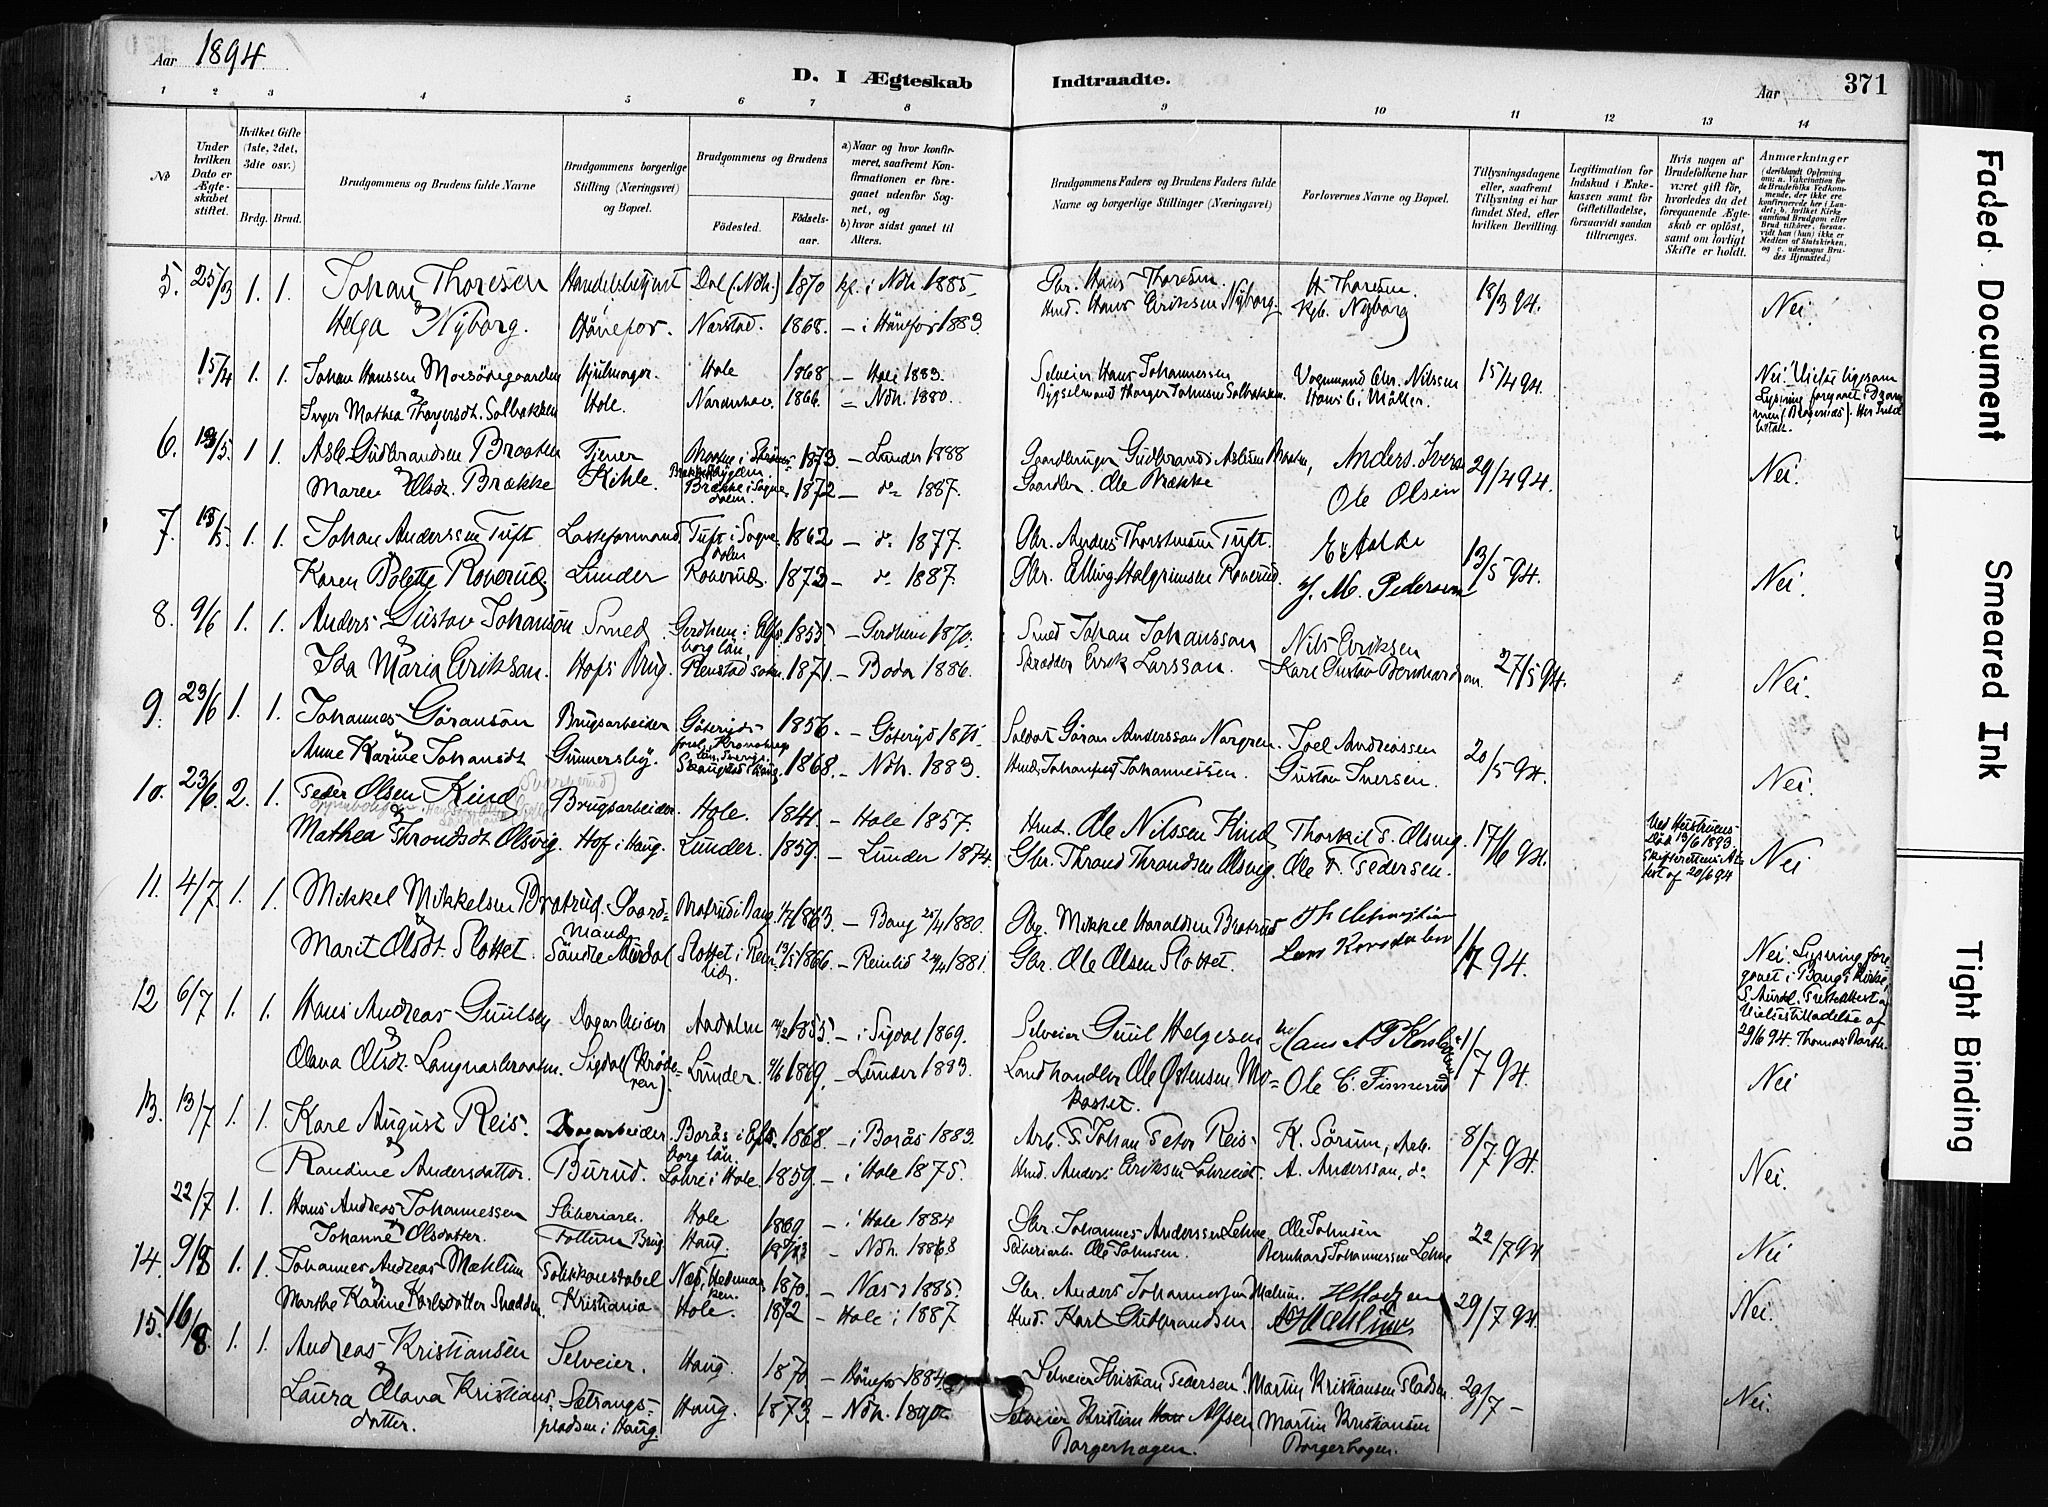 Aar 1894.
D. I Ægteskab Indtraadte.
Aar
371
1 2 3 4 5 6 7 8 9 10 11 12 13 14
No
Under hvilken Dato er Ægteskabet stiftet.
Hvilket Gifte (1ste, 2det, 3die osv.)
Brdg. Brud.
Brudgommens og Brudens fulde Navne
Brudgommens borgerlige Stilling (Næringsvei) og Bopæl.
Brudgommens og Brudens
Födested.
Födselsaar.
a) Naar og hvor konfirmeret, saafremt Konfirmationen er foregaaet udenfor Sognet, og
b) hvor sidst gaaet til Alters.
Brudgommens Faders og Brudens Faders fulde Navne og borgerlige Stillinger (Næringsvei)
Forlovernes Navne og Bopæl.
Tillysningsdagene eller, saafremt Tillysning ei har fundet Sted, efter hvilken Bevilling.
Legitimation for Indskud i Enkekassen samt for Giftetilladelse, forsaavidt saadan tiltrænges.
Hvis nogen af Brudefolkene har været gift för, hvorledes da det foregaaende Ægteskab er oplöst, samt om lovligt Skifte er holdt.
Anmærkninger
(deriblandt Oplysning om: a. Vakcination for de Brudefolks Vedkommende, der ikke ere konfirmerede her i Landet; b. hvilket Kirkesamfund Brudgom eller Brud tilhörer, forsaavidt han (hun) ikke er Medlem af Statskirken, og c. udensogns Brudes Hjemsted.)
5. 25/3 1. 1. Johan Thoresen Handelsbetjent Dal (Ndh.) 1870 kf. i Ndh. 1885 Gbr. Hans Thoresen. H. Thoresen. 18/3 94. Nei.
& Helga Nyborg. Hönefos. Narstad. 1868. – i Hönefos 1883. Hmd. Hans Eriksen Nyborg. Kgb. Nyborg
15/4 1. 1. Johan Hanssen Moesönegaarden Hjulmager. Hole 1868 – Hole 1883. Selveier Hans Johannessen Vognmand Chr. Nilssen 15/4 94. Nei
Inger Mathea Thorgersdt. Solbakken Hole. Norderhov. 1866. – Ndh. 1880. Bygselmand Thorger Johnsen Solbakken. Hans C. Möller.
6. 13/5. 1 1 Asle Gudbrandsen Braaten Tjener 1873. – Lunder 1888 Gaardbruger Gudbrand Aslesen Braaten, Anders Ivers 29/4 94. Nei.
& Maren Olsdt. Brække Kihle. Brække i Sognedalen. 1872 – do 1887. Gaardbr. Ole Brække Ole Olsen
7. 13/5. 1. 1. Johan Anderssen Tuft Lasseformand Tuft i Sognedalen 1862 – do 1877. Gbr. Anders Thorstensen Tuft. 13/5 94.
Karen Bolette Roverud Lunder Roverud. 1873 – do 1887. Gbr. Elling Halgrimsen Roverud. M. Pedersen Nei.
8. 9/6 1. 1. Anders Gustav Johanson Smed Gerdhem i Elfsborg län. 1855 – Gerdhem 1870. Smed Johan Johansson Nils Eriksen
& Ida Maria Erikson. Hofs Brug. 1871. – Boda 1886. Skrædder Erik Larsson. Karl Gustav Bernhardson. 27/5 94. Nei.
9. 23/6 1. 1. Johannes Göranson Brugsarbeider Göteryds 1856. – Göteryd 1871. Soldat Göran Andersson Norgren. Joel Andreassen 20/5 94.
& Anne Karine Johansdt Gunnersby. 1868. – Ndh. 1883. Hmd. Johannes Johannessen. Gustav Iversen. Nei.
10. 23/6. 2. 1. Peder Olsen Kind Brugsarbeider Hole. 1841. – Hole 1857. Hmd. Ole Nilssen Kind Thorkil T. Olsvig. 17/6 94. Ved Hustruens Död 13/6 1893. af 20/6 94 Nei
& Mathea Throndsdt Olsvig. Hof i Haug. Lunder. 1859. – Lunder 1874. Gbr. Thrond Throndsen Olsvig. Ole T. Pedersen.
11. 4/7 1. 1. Mikkel Mikkelsen Brotrud. Gaardmand Brotrud i Bang 1863. – Bang 25/4 1880. Gbr. Mikkel Haraldsen Brotrud
& Marit Olsdt. Slottet. Söndre Aurdal Slottet i Reinlid. 13/5 1866. – Reinlid 1881. Gbr. Ole Olsen Slottet. 1/7 94. Nei. Lysning foregaaet i Bangs Kirke, S. Aurdal. 29/6 94. Thomas Barth.
12 6/7 1. 1. Hans Andreas Guulsen Dagarbeider Aadalen 1855. – i Sigdal 1869. Selveier Guul Helgesen 1/7 94.
& Olava Olsdt. Langvasbraaten. Sigdal (Kröderen). Lunder. 1869. – Lunder 1883. Landhandler Ole Östensen Mokastet. Ole C. Finnerud Nei
13. 13/7 1. 1. Karl August Reis. Dagarbeider. Borås i Elfsborg län. 1868. – i Borås 1883. Arb. F. Johan Peter Reis. K. Sörum, Arb. 8/7 94.
& Randine Andersdatter. Burud. Lohre i Hole. 1859. – i Hole 1875. Hmd. Anders Eriksen Lohreeiet. A. Andersson, do Nei.
22/7 1. 1. Hans Andreas Johannessen Sliberiarb. Hole 1869. – i Hole 1884 Gbr. Johannes Anderssen Lehne Ole Johnsen 22/7 94
& Johanne Olsdatter. Follum Brug Haug. – Ndh. Sliberiarb. Ole Johnsen. Bernhard Johannessen Lehne Nei
14. 9/8 1. 1. Johannes Andreas Mæhlum Politikonstabel Næs, Hedemarken. 1870. – Næs 1885. Gbr. Anders Johannessen Mælum. 29/7 94.
& Marthe Karine Karlsdatter Kristiania Hole. 1872 – Hole i 1887 Hmd. Karl Gudbrandsen Nei.
15. 16/8. 1. 1. Andreas Kristiansen Selveier. Haug. 1870 – Hönefos 1884. Selveier Kristian Pedersen. Martin Kristiansen Pladsen. 29/7 –
& Laura Olava Kristiansdatter. Sætrangspladsen i Haug. Haug. 1873. – Ndh. 1890. Selveier Kristian Alfsen Borgerhagen. Martin Kristiansen Borgerhagen. Nei.
Faded Document
Smeared Ink
Tight Binding